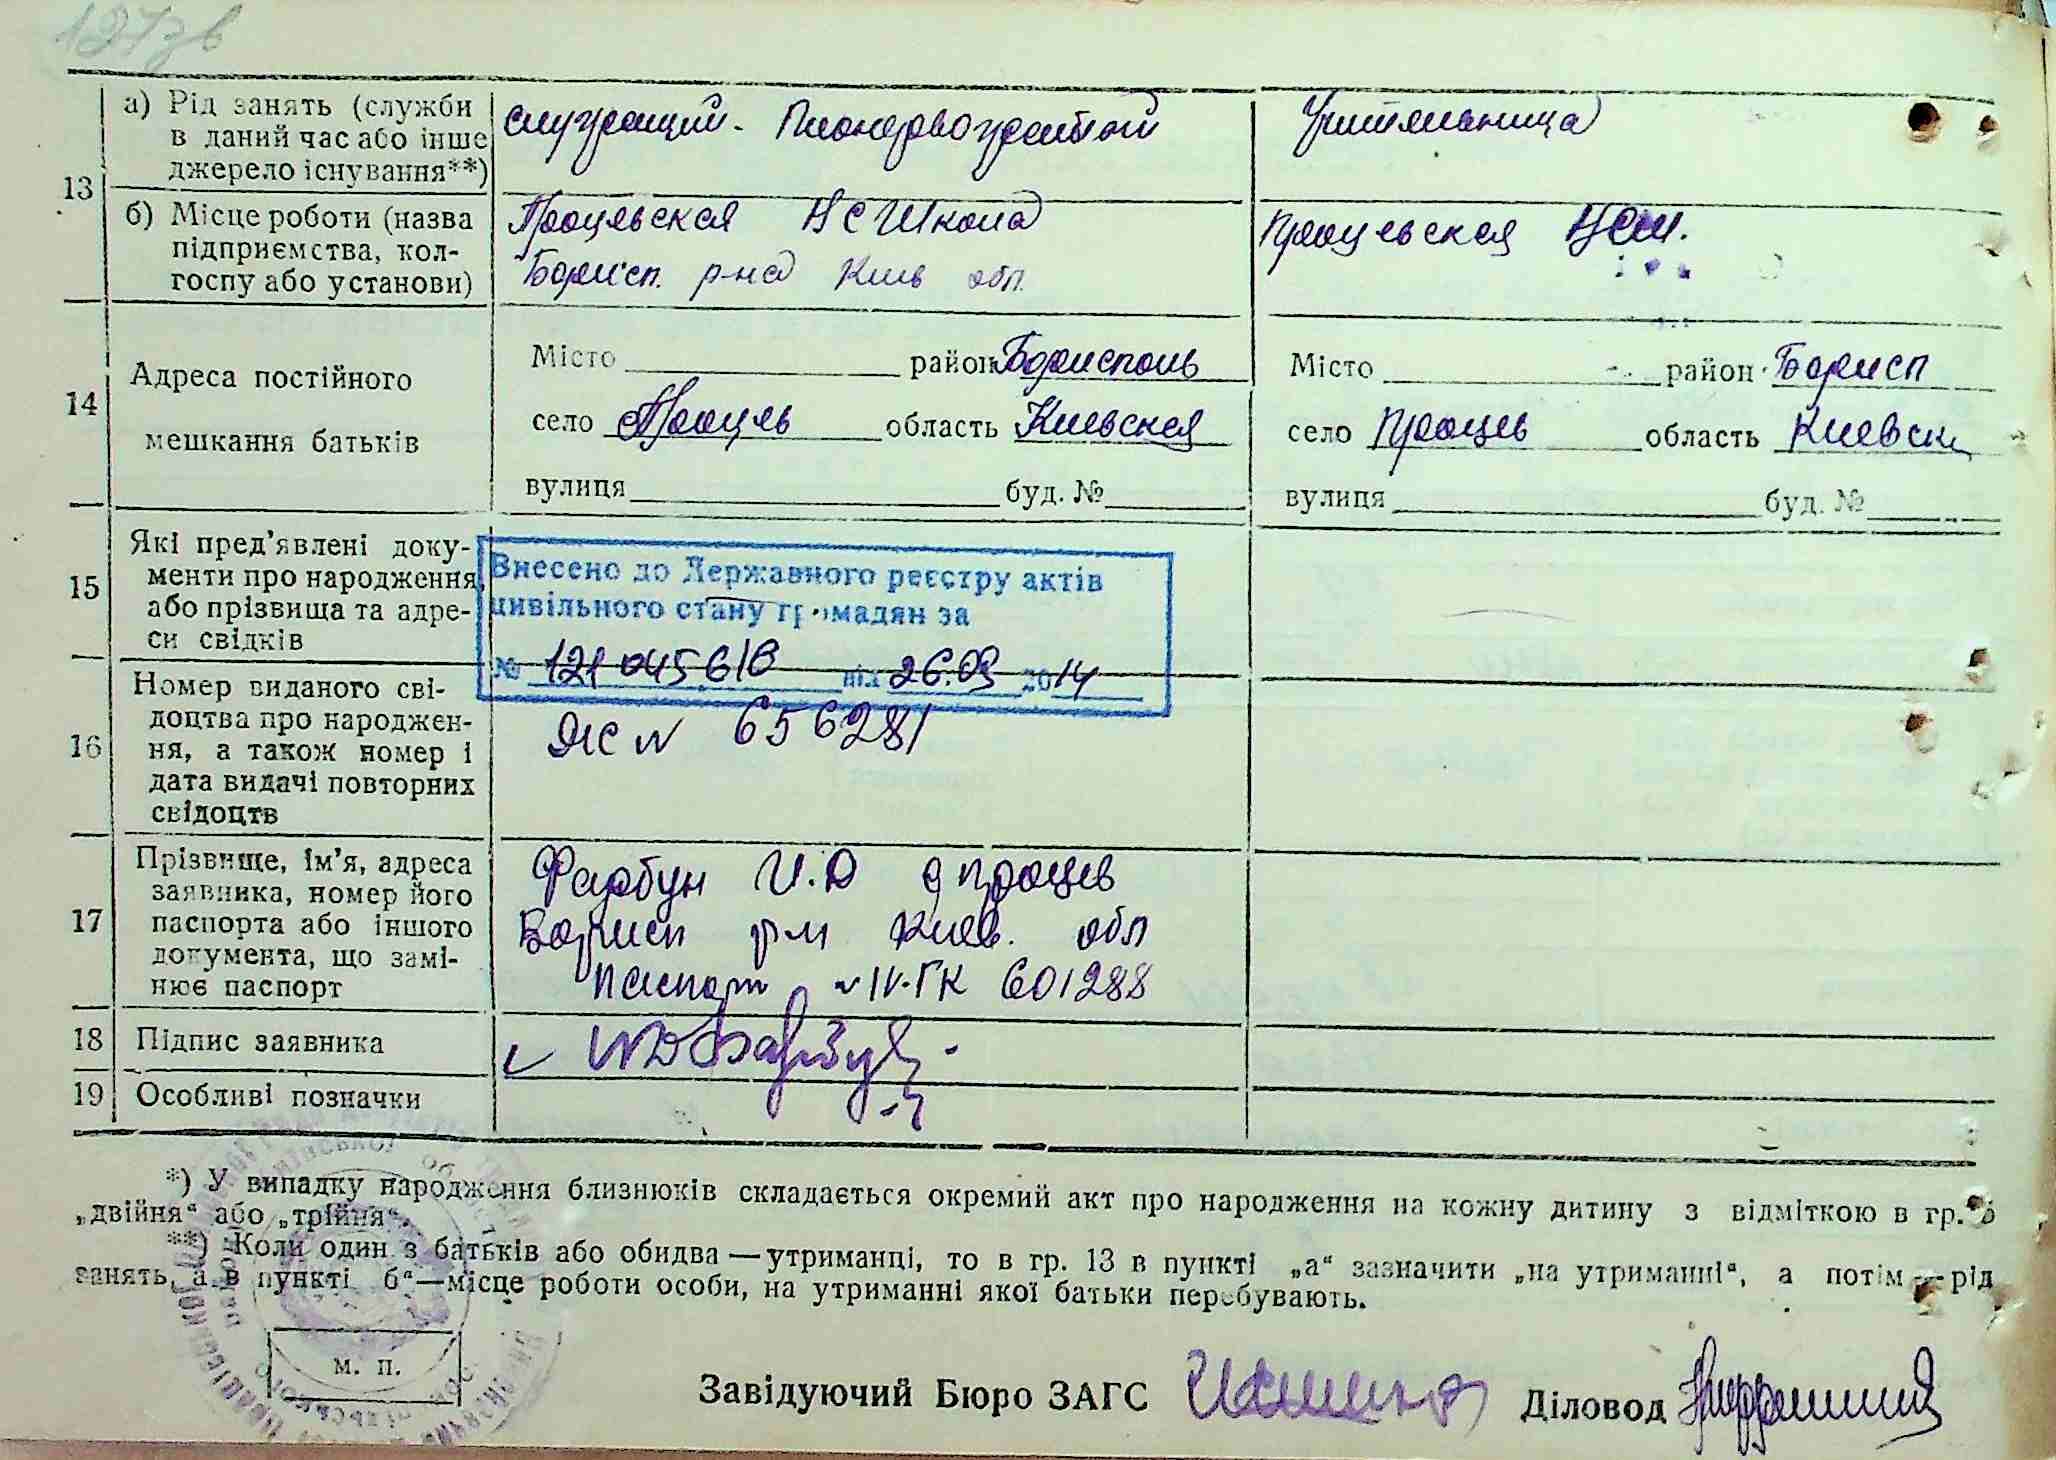 13
а) Рід занять (служби
в даний час або інше
джерело існування**)
служащий. Пионервожатый
Учительница
б) Місце роботи (назва
підприємства, кол-
госпу або установи)
Процевская НСШкола
Борисп. р-на Киев обл.
Процевская НСШ.
14
Адреса постійного
мешкання батьків
Місто район Борисполь
село Процев область Киевская
вулиця буд. №
Місто район Борисп
село Процев область Киевск
вулиця буд. №
15
Які пред’явлені доку-
менти про народження,
або прізвища та адре-
си свідків
Внесено до Державного реєстру актів
цивільного стану громадян за
№ від 26.03 2014
16
Номер виданого сві-
доцтва про народжен-
ня, а також номер і
дата видачі повторних
свідоцтв
№ 656281
17
Прізвище, ім’я, адреса
заявника, номер його
паспорта або іншого
документа, що замі-
нює паспорт
Фарбун И.Д с Процев
Борисп р-н Киев. обл
паспорт № IV-ГК 601288
18
Підпис заявника
19
Особливі позначки
*) У випадку народження близнюків складається окремий акт про народження на кожну дитину з відміткою в гр.
„двійня“ або „трійня“.
**) Коли один з батьків або обидва — утриманці, то в гр. 13 в пункті „а“ зазначити „на утриманні“, а потім — рід
занять, а в пункті б“ — місце роботи особи, на утриманні якої батьки перебувають.
М. П.
Завідуючий Бюро ЗАГС
Діловод